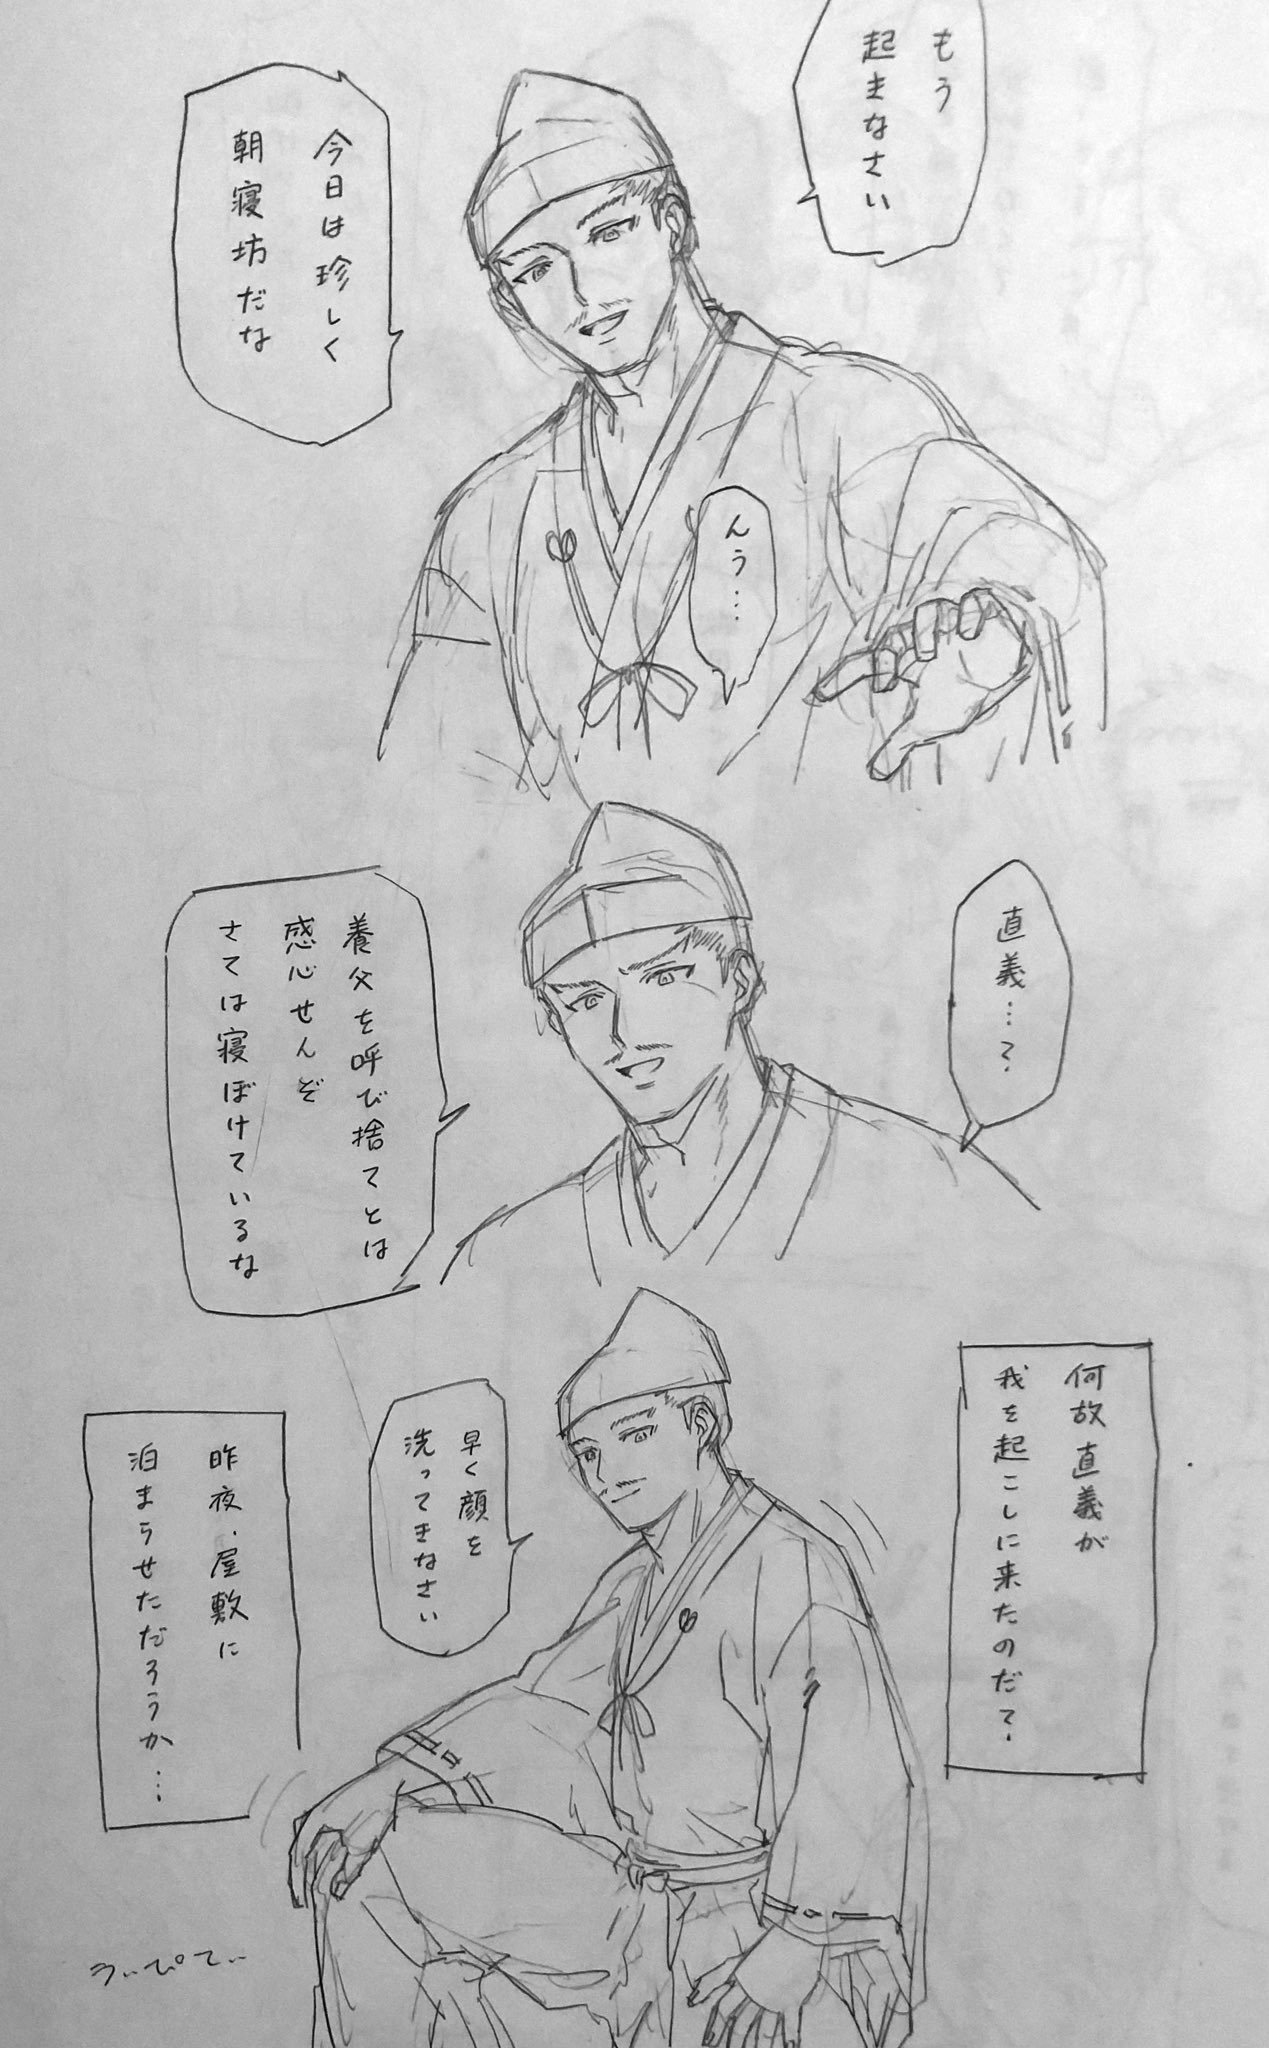 もう
起きなさい
今日は珍しく
朝寝坊だな
んう…
直義…?
養父を呼び捨てとは
感心せんぞ
さては寝ぼけているな
何故直義が
我を起こしに来たのだ?
早く顔を
洗ってきなさい
昨夜、屋敷に
泊まらせただろうか…
うぃぴてぃ